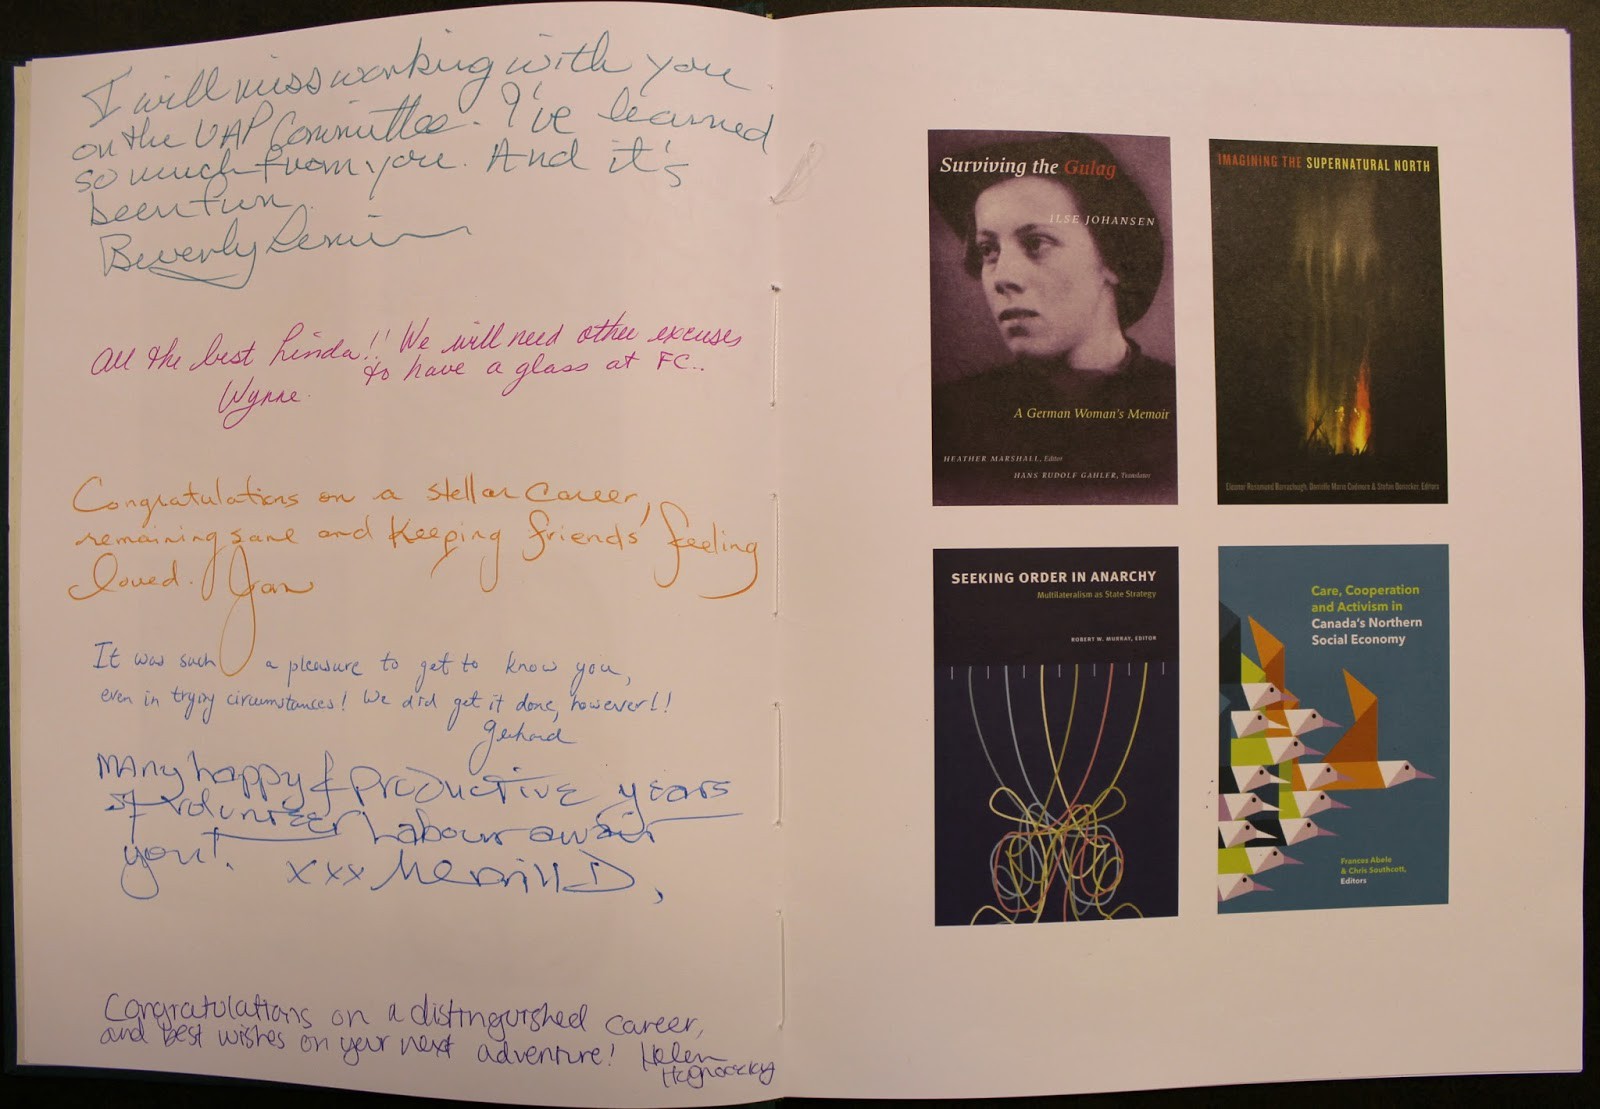 I will miss working with you
on the UAP Committee. I've learned
so much from you. And it's
been fun.
Beverly Lemire
All the best Linda!! We will need other excuses
to have a glass at FC..
Wynne.
Congratulations on a stellar career,
remaining sane and keeping friends feeling
loved. Jan
It was such a pleasure to get to know you,
even in trying circumstances! We did get it done, however!!
Gerhard
Many happy & productive years
of volunteer labour await
you! xxx Merrill D,
Congratulations on a distinguished career,
and best wishes on your next adventure! Helen
Surviving the Gulag
ILSE JOHANSEN
A German Woman's Memoir
HEATHER MARSHALL, Editor
HANS RUDOLF GAHLER, Translator
IMAGINING THE SUPERNATURAL NORTH
Eleanor Rosamund Barraclough, Danielle Marie Cudmore & Stefan Donecker, Editors
SEEKING ORDER IN ANARCHY
Multilateralism as State Strategy
ROBERT W. MURRAY, EDITOR
Care, Cooperation
and Activism in
Canada's Northern
Social Economy
Frances Abele
& Chris Southcott,
Editors